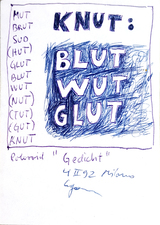 MUT
BRUT
SUD
(HUT)
GLUT
BLUT
WUT
(NUT)
(TUT)
(GUT)
KNUT
KNUT:
BLUT
WUT
GLUT
"Gedicht"
4 II 92 Milano